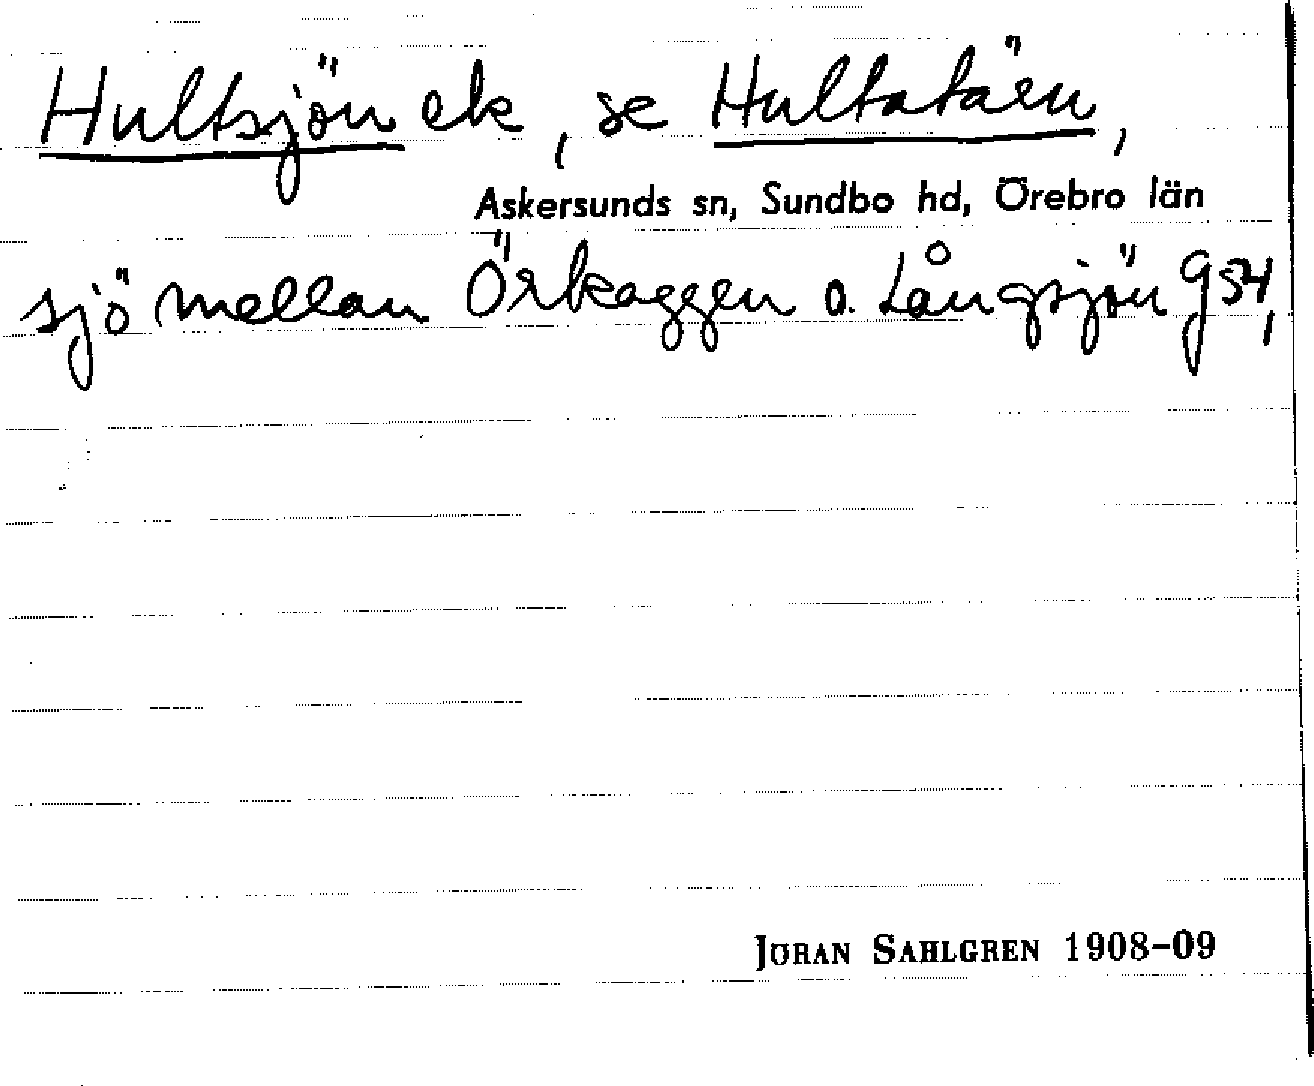 Hultsjön ek, se Hultatärn,
Askersunds sn, Sundbo hd, Örebro län
sjö mellan Örkaggen o. Långsjön G54,
JÖRAN SAHLGREN 1908-09